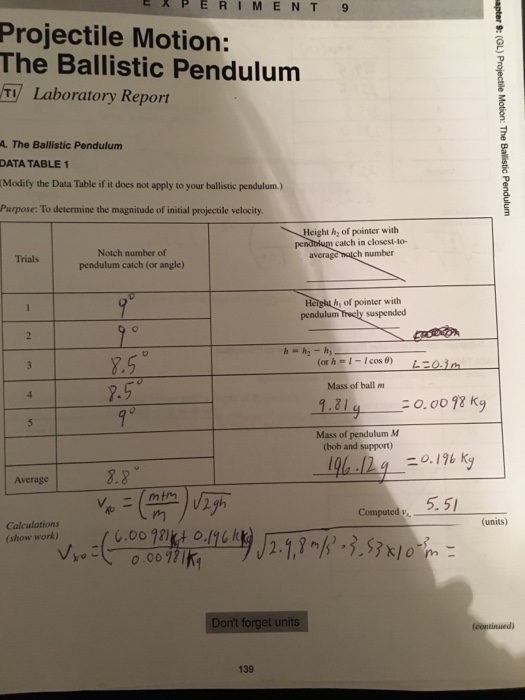 EXPERIMENT 9
Projectile Motion:
The Ballistic Pendulum
TI Laboratory Report
apter 9: (GL) Projectile Motion: The Ballistic Pendulum
A. The Ballistic Pendulum
DATA TABLE 1
(Modify the Data Table if it does not apply to your ballistic pendulum.)
Purpose: To determine the magnitude of initial projectile velocity.
Trials
Notch number of
pendulum catch (or angle)
Height h₂ of pointer with
pendulum catch in closest-to-
average notch number
1 9°
2 9°
3 8.5°
4 8.5°
5 9°
Average 8.8°
Height h₁ of pointer with
pendulum freely suspended
h = h₂ − h₁
(or h = l − l cos θ) L=0.3m
Mass of ball m
9.81g =0.0098 Kg
Mass of pendulum M
(bob and support)
196.12g =0.196 Kg
Vxo = (m+m/m) √2gh
Computed vₓ₀ 5.51
(units)
Calculations
(show work)
Vxo=(6.00981Kg+0.196Kg/0.00981Kg)√2·9.8m/s²·3.53x10⁻³m =
Don't forget units
(continued)
139